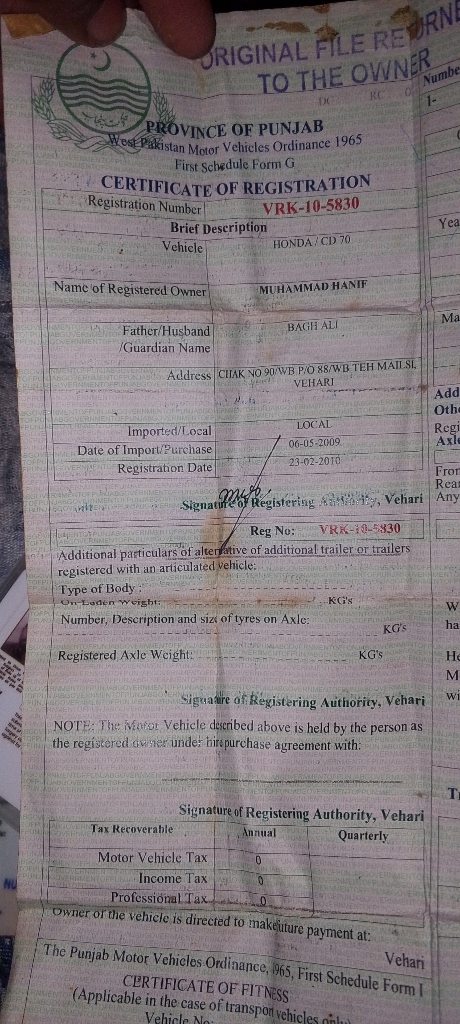 ORIGINAL FILE RETURNE
TO THE OWNER
PROVINCE OF PUNJAB
West Pakistan Motor Vehicles Ordinance 1965
First Schedule Form G
CERTIFICATE OF REGISTRATION
Registration Number VRK-10-5830
Brief Description
Vehicle HONDA / CD 70
Name of Registered Owner MUHAMMAD HANIF
Father/Husband BAGH ALI
/Guardian Name
Address CHAK NO 90/WB P/O 88/WB TEH MAILSI,
VEHARI
Imported/Local LOCAL
Date of Import/Purchase 06-05-2009
Registration Date 23-02-2010
Signature of Registering Authority, Vehari
Reg No: VRK-10-5830
Additional particulars of alternative of additional trailer or trailers
registered with an articulated vehicle:
Type of Body :
Un Laden Weight: KG's
Number, Description and size of tyres on Axle:
KG's
Registered Axle Weight: KG's
Signature of Registering Authority, Vehari
NOTE: The Motor Vehicle described above is held by the person as
the registered owner under hire purchase agreement with:
Signature of Registering Authority, Vehari
Tax Recoverable Annual Quarterly
Motor Vehicle Tax 0
Income Tax 0
Professional Tax 0
Owner of the vehicle is directed to make future payment at:
Vehari
The Punjab Motor Vehicles Ordinance, 1965, First Schedule Form I
CERTIFICATE OF FITNESS
(Applicable in the case of transport vehicles only)
Vehicle No:
Numbe
1-
Yea
Ma
Add
Othe
Regi
Axle
Fron
Rear
Any
W
ha
He
M
wi